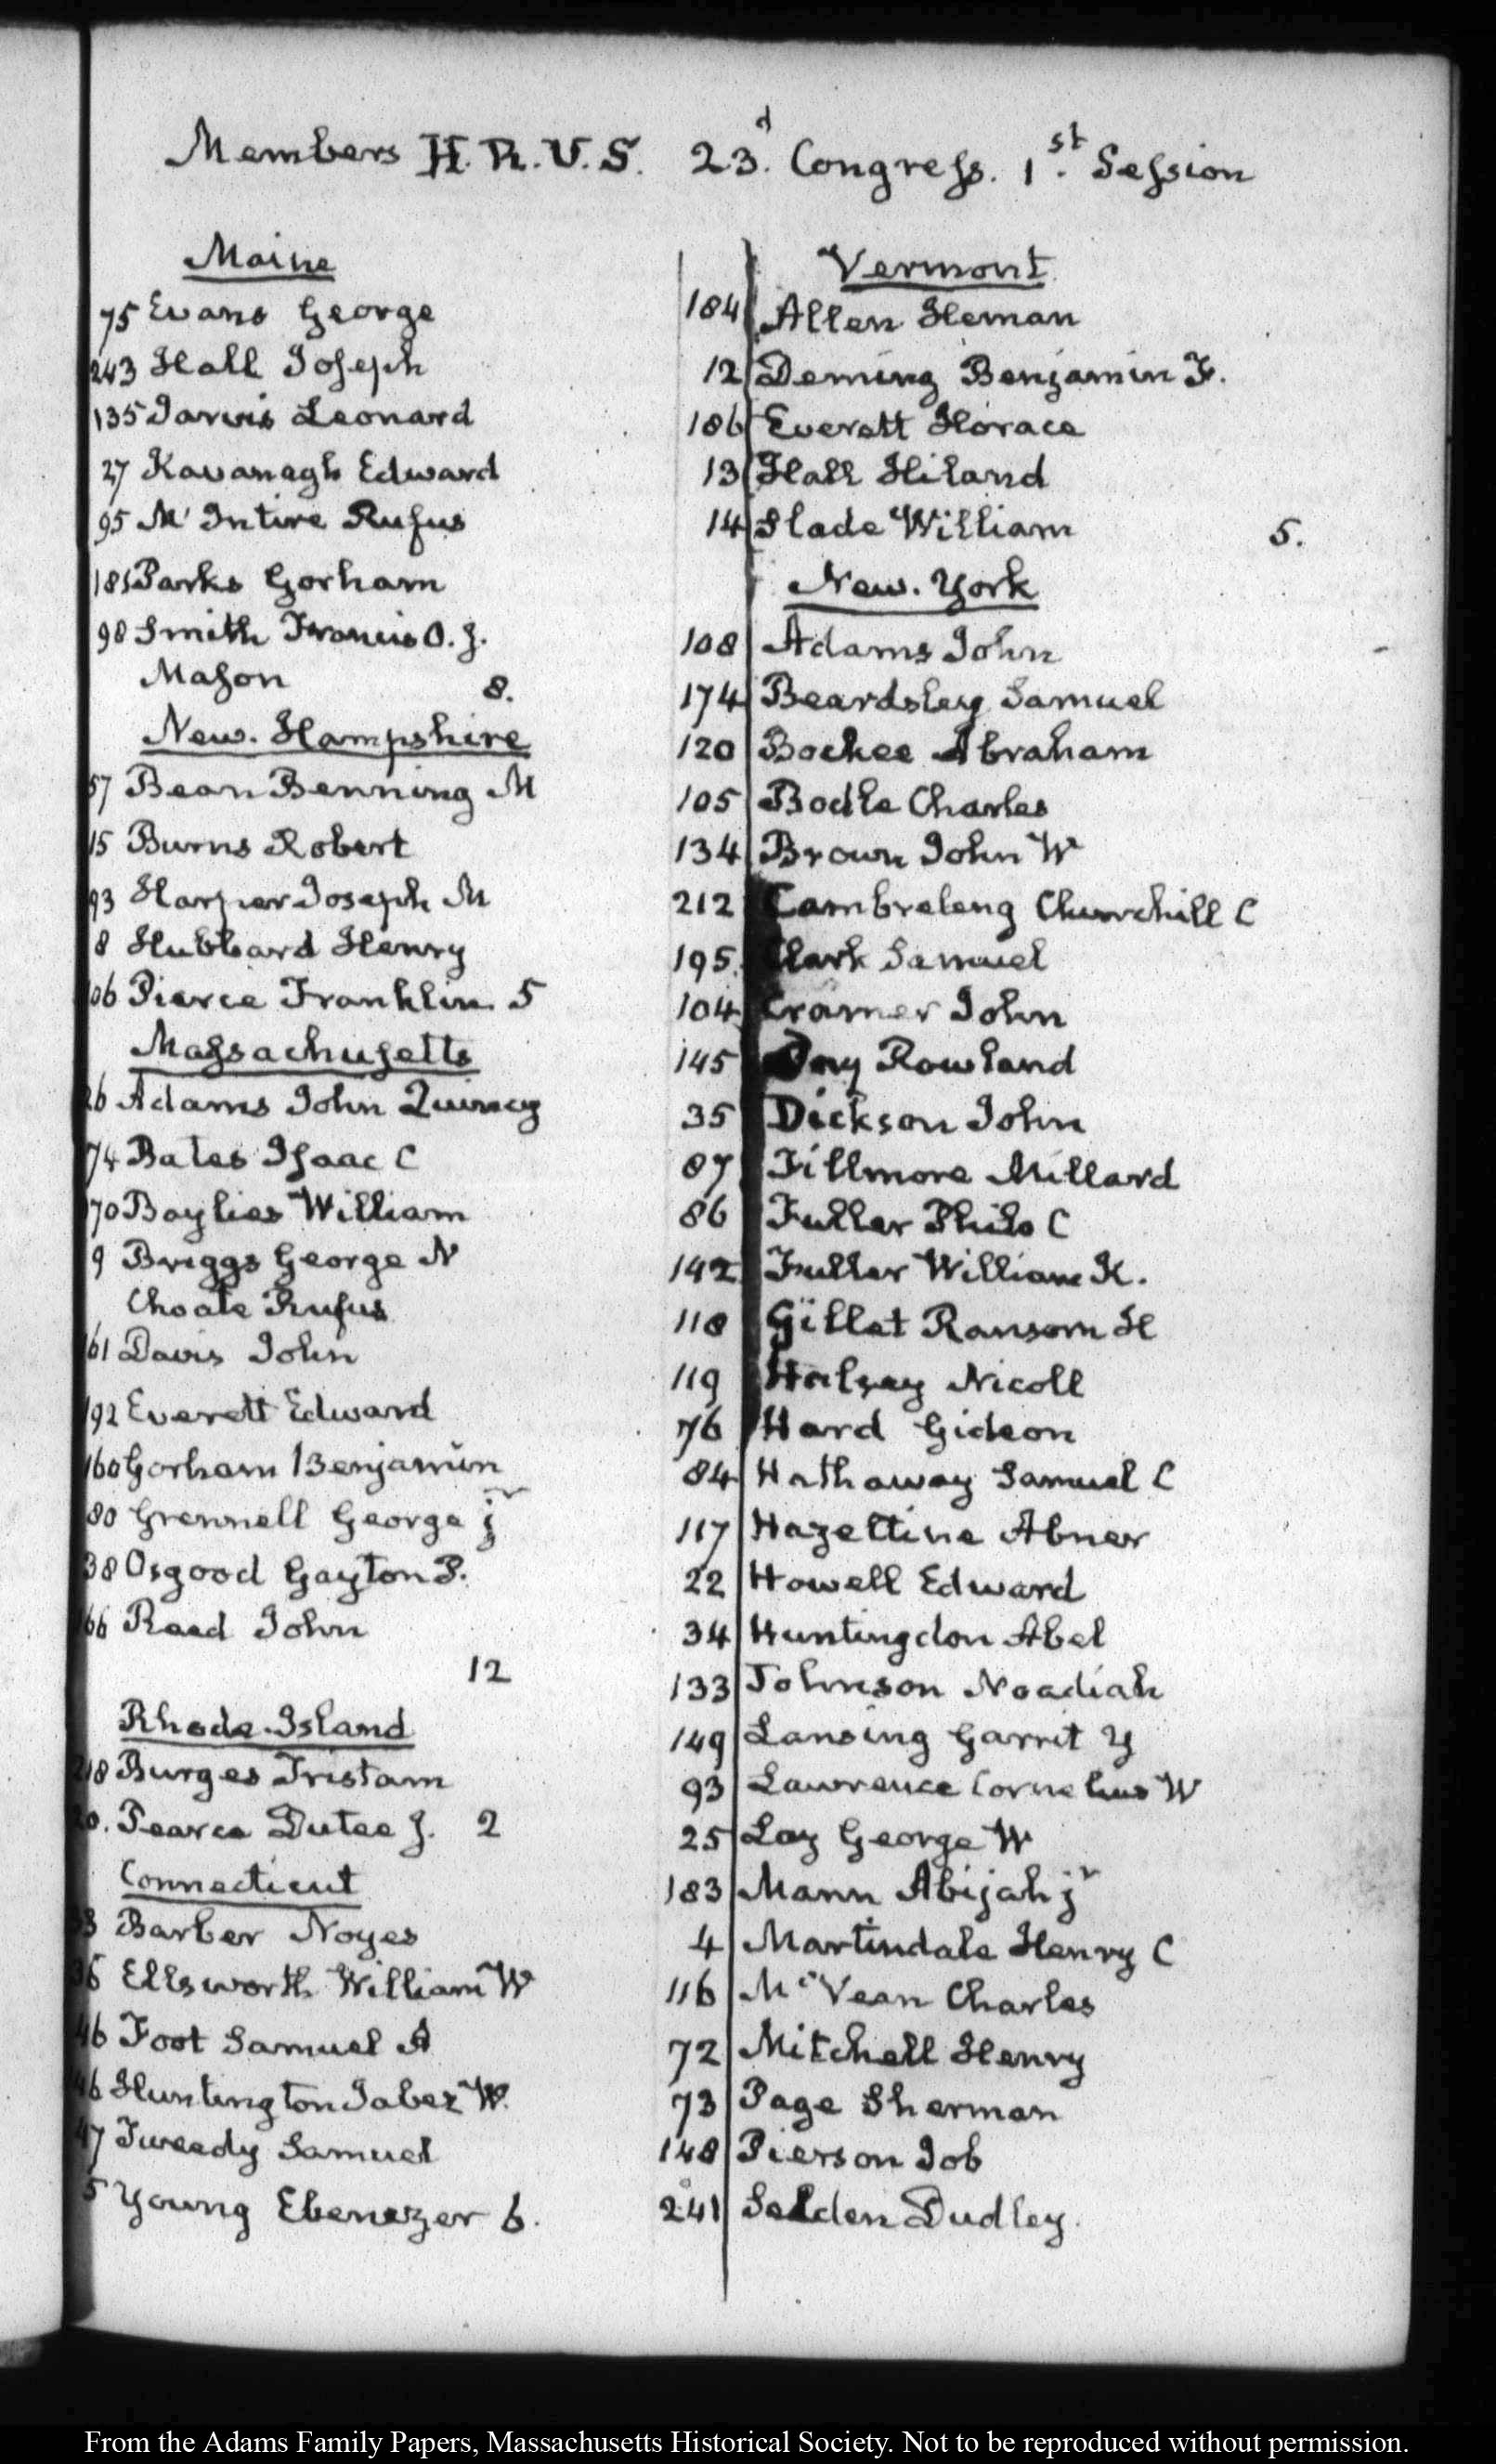 Members H. R. U. S. 23.d Congress. 1.st Session
Maine
75 Evans George
243 Hall Joseph
135 Jarvis Leonard
27 Kavanagh Edward
95 Mc Intire Rufus
181 Parks Gorham
98 Smith Francis O. J.
Mason 8.
New. Hampshire
57 Bean Benning M
15 Burns Robert
93 Harper Joseph M
8 Hubbard Henry
06 Pierce Franklin. 5
Massachusetts
26 Adams John Quincy
74 Bates Isaac C
70 Baylies William
9 Briggs George N
Choate Rufus
61 Davis John
192 Everett Edward
160 Gorham Benjamin
80 Grennell George jr
38 Osgood Gayton P.
66 Reed John
12
Rhode-Island
218 Burges Tristam
20. Pearce Dutee J. 2
Connecticut
Barber Noyes
36 Ellsworth William W
46 Foot Samuel A
46 Huntington Jabez W.
47 Tweedy Samuel
5 Young Ebenezer 6.
Vermont
184 Allen Heman
12 Deming Benjamin F.
186 Everett Horace
13 Hall Hiland
14 Slade William 5.
New. York
108 Adams John
174 Beardsley Samuel
120 Bockee Abraham
105 Bodle Charles
134 Brown John W
212 Cambreleng Churchill C
195. Clark Samuel
104 Cramer John
145 Day Rowland
35 Dickson John
87 Fillmore Millard
86 Fuller Philo C
142 Fuller William K.
118 Gillet Ransom H
119 Halsey Nicoll
76 Hard Gideon
84 Hathaway Samuel C
117 Hazeltine Abner
22 Howell Edward
34 Huntingdon Abel
133 Johnson Noadiah
149 Lansing Garrit Y
93 Lawrence Cornelius W
25 Lay George W
183 Mann Abijah jr
4 Martindale Henry C
116 Mc Vean Charles
72 Mitchell Henry
73 Page Sherman
148 Pierson Job
241 Selden Dudley.
From the Adams Family Papers, Massachusetts Historical Society. Not to be reproduced without permission.